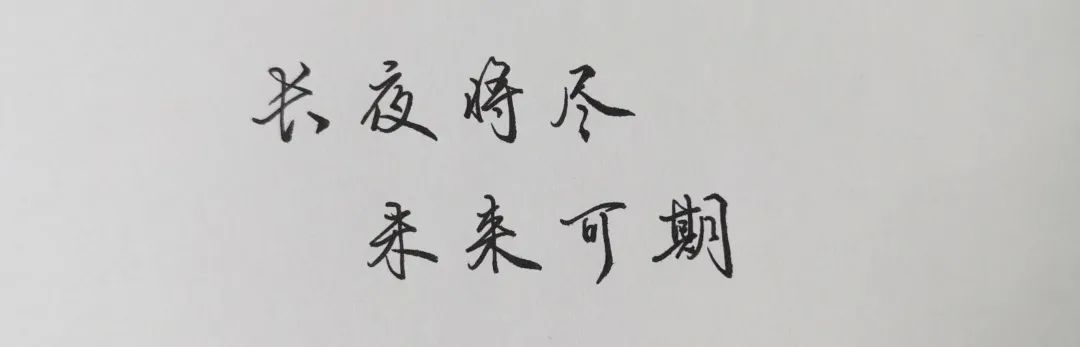 长夜将尽
未来可期